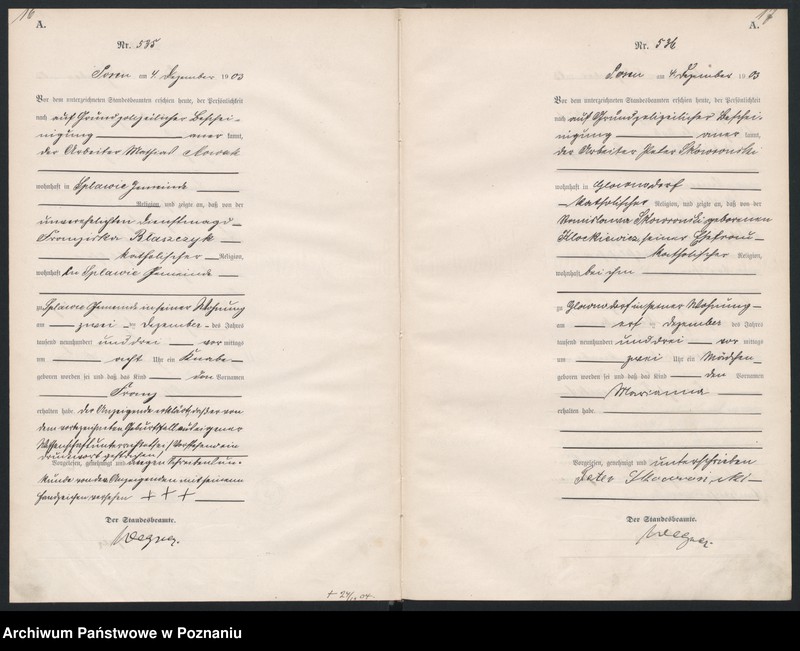 16
A.
Nr. 535
Posen am 4. Dezember 1903
Vor dem unterzeichneten Standesbeamten erschien heute, der Persönlichkeit
nach auf Grund polizeilicher Beschei-
nigung aner kannt,
der Arbeiter Nowak
wohnhaft in Splawie Gemeinde
Religion, und zeigte an, daß von der
unverehelichten Dienstmagd
Franziska Blaszczyk
katholischer Religion,
wohnhaft in Splawie Gemeinde
zu Splawie Gemeinde in seiner Wohnung
am zwei ten Dezember des Jahres
tausend neunhundert und drei vor mittags
um acht Uhr ein Knabe
geboren worden sei und daß das Kind den Vornamen
Franz
erhalten habe. Der Anzeigende erklärt, daß er von
dem vorbezeichneten Geburtsfall aus eigener
Wissenschaft unterrichtet sei. Vorstehend ein
Druckwort gestrichen.
Vorgelesen, genehmigt und wegen Schreibensun-
kunde von dem Anzeigenden mit seinem
Handzeichen versehen + + +
Der Standesbeamte.
+ 24/
17
A.
Nr. 536
Posen am 4. Dezember 1903
Vor dem unterzeichneten Standesbeamten erschien heute, der Persönlichkeit
nach auf Grund polizeilicher Beschei-
nigung aner kannt,
der Arbeiter Peter Skowronski
wohnhaft in Glownodorf
katholischer Religion, und zeigte an, daß von der
Skowronski geborenen
seiner Ehefrau
katholischer Religion,
wohnhaft bei ihm
zu Glownodorf in seiner Wohnung
am ersten Dezember des Jahres
tausend neunhundert und drei vor mittags
um zwei Uhr ein Mädchen
geboren worden sei und daß das Kind den Vornamen
Marianna
erhalten habe.
Vorgelesen, genehmigt und unterschrieben
Peter Skowroński
Der Standesbeamte.
Archiwum Państwowe w Poznaniu